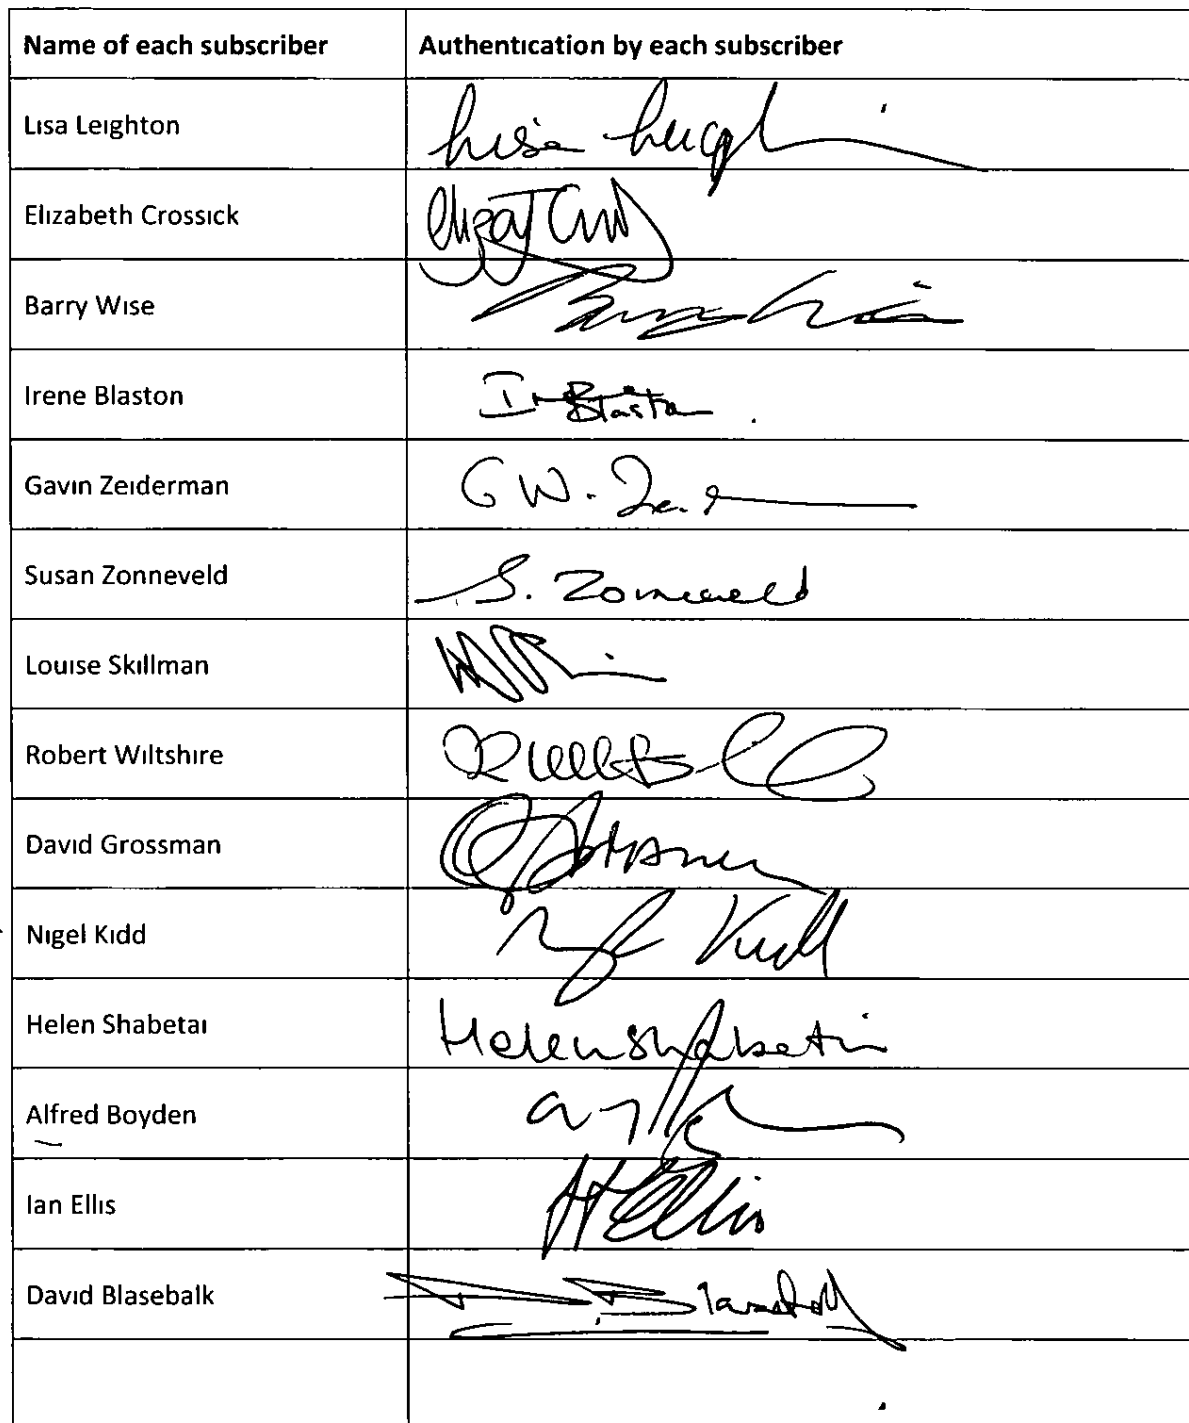 Name of each subscriber Authentication by each subscriber
Lisa Leighton Lisa Leigh
Elizabeth Crossick
Barry Wise
Irene Blaston Blaston
Gavin Zeiderman G W.
Susan Zonneveld S. Zonneveld
Louise Skillman
Robert Wiltshire
David Grossman
Nigel Kidd Kidd
Helen Shabetai Helen Shabetai
Alfred Boyden
Ian Ellis Ellis
David Blasebalk